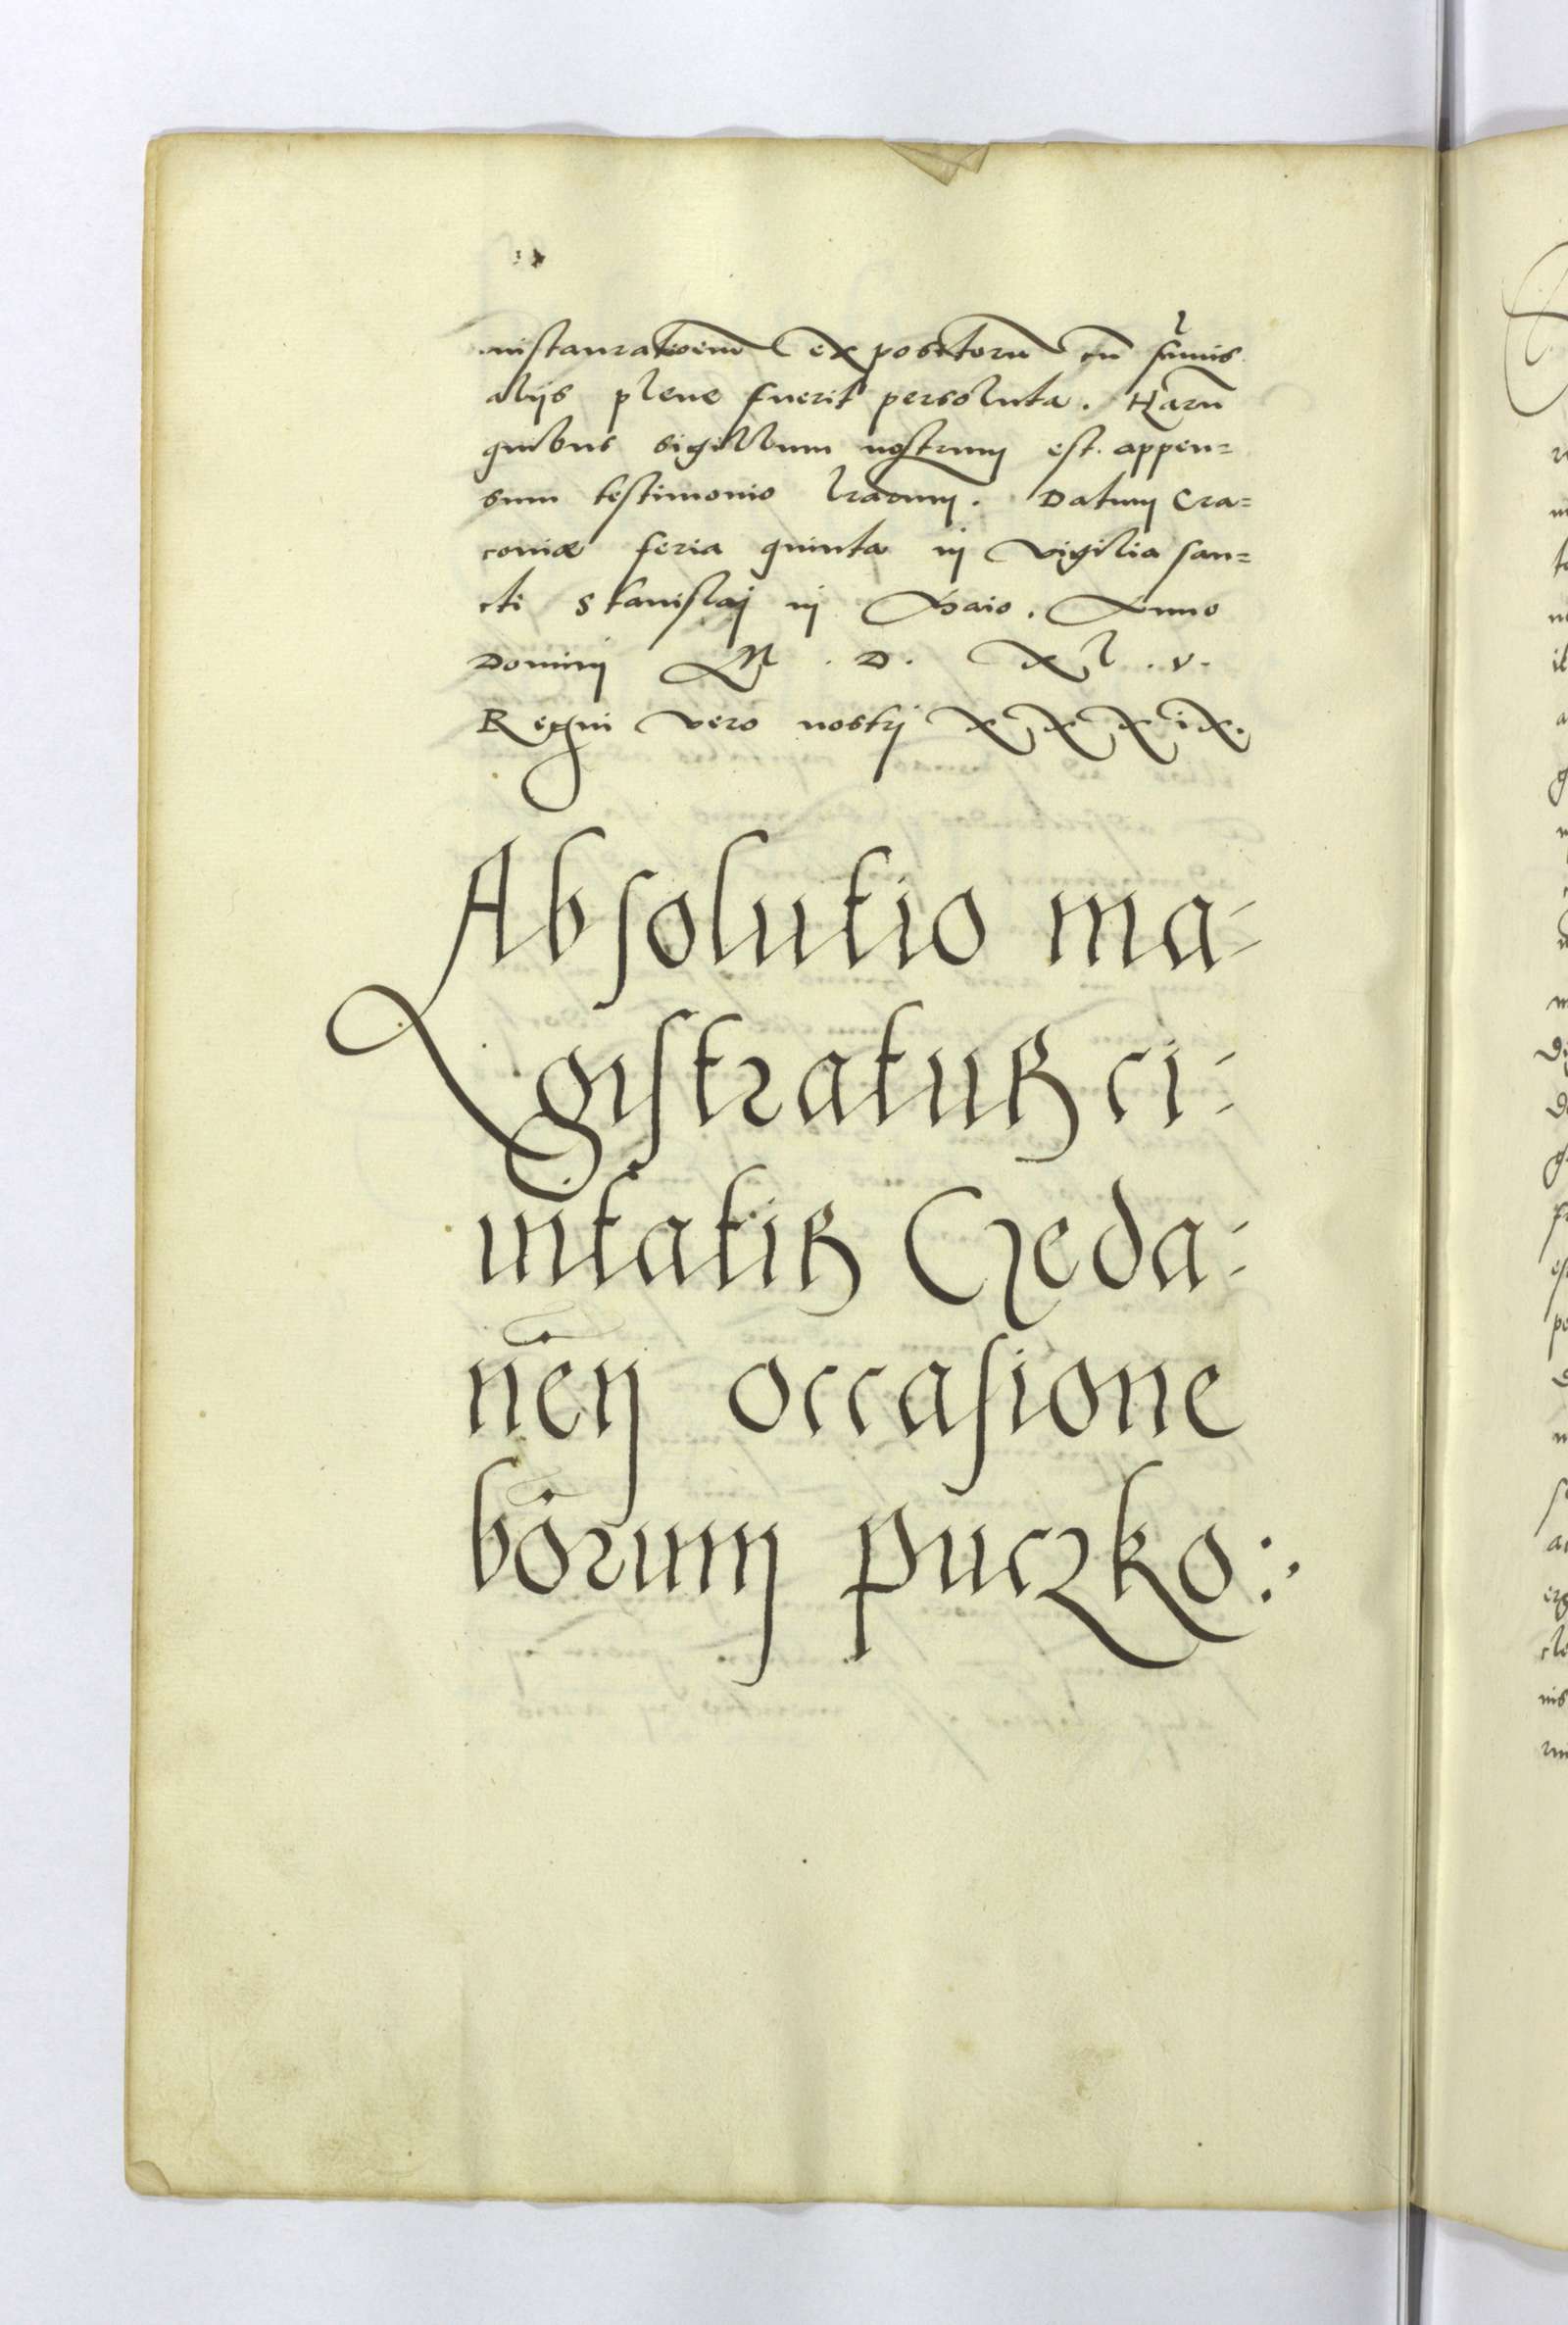 instauratioem expositoru cū sūmis
alijs plene fuerit persoluta. Harū
quibus sigillum nostrum est appen=
sum testimonio lrarum. Datum Cra=
coviæ feria quinta in vigilia san=
cti Stanislaj in Maio. Anno
Domini M . D . Xl . v .
Regni vero nostrj XXXIX.
Absolutio ma-
gistratus ci-
uitatis Geda-
nen̄ occasione
bōrum puczko: